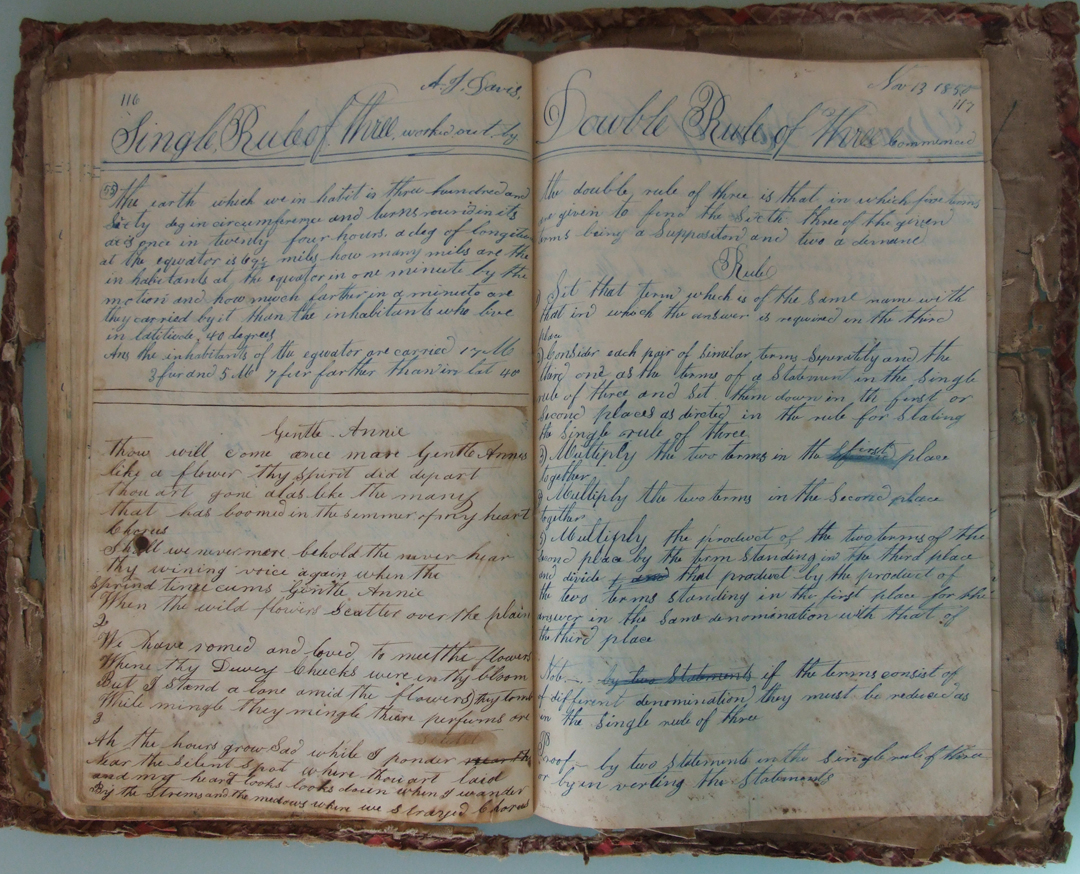 116
A. J. Davis.
Single Rule of Three worked out by
55 the earth which we in habit is three hundred and
Sixty deg in circumference and turns round in its
axis once in twenty four hours. a deg of longitu
at the equator is 69½ miles how many mils are the
in habitants at the equator in one minute by the
motion and how much farther in a minecto are
they carried by it than the inhabitants who live
in latitude, 40 degrees
Ans the inhabitants of the equator are carried 17 M
3 fur and 5 M 7 fur farther than in lat 40
Gentle Annie
thow will come once more Gentle Annie
like a flower thy spirit did depart
thou art gone alas like the many
that has boomed in the summer of my heart
Chorus
Shall we never more behold the never hear
thy wining voice again when the
Sprind time cums Gentle Annie
When the wild flowers Scatter over the plain
2
We have romed and loved to meet the flowers
Where thy Dewey Cheecks were in thy bloom
But I stand a lone amid the flowers
While mingle they mingle there perfums
3
Ah the hours grow Sad while I ponder
Near the Silent Spot where thou art laid
and my heart looks looks down when I wander
By the Strems and the medows where we Strayed Chorus
Nov 13 1858
117
Double Rule of Three Commenced
the double rule of three is that, in which five terms
are given to find the Sixth three of the given
terms being a Suppositon and two a demand
Rule
1) Sit that Term which is of the Same name with
that in which the answer is required in the third
place
2) Consider each pair of Similar terms Seperately and the
third one as the terms of a Statement in the Single
rule of three and Set them down in th first or
Second places as directed in the rule for Stating
the Single rule of three
3) Multiply the two terms in the first place
together
4) Multiply the two terms in the Second place
together
5) Multiply the product of the two terms of the
Second place by the term Standing in the third place
and divide and that product by the product of
the two terms Standing in the first place for the
answer in the Same denomination with that of
the third place
Note by two Statements if the terms consist of
of different denomination they must be reduced as
in the Single rule of three
Proof by two Statements in the Single rule of three
or by in verting the Statements